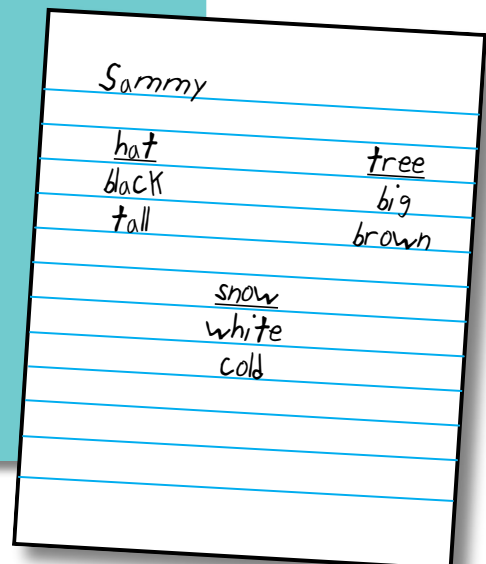 Sammy
hat
black
tall
tree
big
brown
snow
white
cold